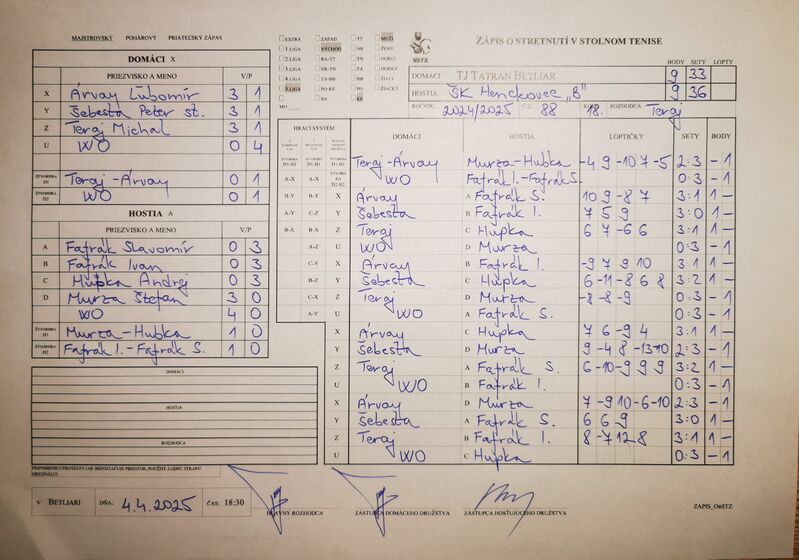 MAJSTROVSKÝ POHÁROVÝ PRIATEĽSKÝ ZÁPAS
DOMÁCI X
PRIEZVISKO A MENO V/P
X Árvay Ľubomír 3 1
Y Šebesta Peter st. 3 1
Z Teraj Michal 3 1
U WO 0 4
ŠTVORHRA D1 Teraj - Árvay 0 1
ŠTVORHRA D2 WO 0 1
HOSTIA A
PRIEZVISKO A MENO V/P
A Fafrák Slavomír 0 3
B Fafrák Ivan 0 3
C Hupka Andrej 0 3
D Murza Štefan 3 0
WO 4 0
ŠTVORHRA H1 Murza - Hubka 1 0
ŠTVORHRA H2 Fafrák I. - Fafrák S. 1 0
DOMÁCI
HOSTIA
ROZHODCA
PRIPOMIENKY/PROTESTY (AK NEPOSTAČUJE PRIESTOR, POUŽITE ZADNÚ STRANU ORIGINÁLU)
V BETLIARI DŇA: 4.4.2025 ČAS: 18:30
EXTRA ZÁPAD TT MUŽI
1.LIGA VÝCHOD NR ŽENY
2.LIGA BA-TT TN DORCI
3.LIGA NR-TN ZA DORKY
4.LIGA ZA-BB BB ŽIACI
5.LIGA PO-KE PO ŽIAČKY
BA KE
MO
SSTZ
ZÁPIS O STRETNUTÍ V STOLNOM TENISE
BODY SETY LOPTY
DOMÁCI TJ TATRAN BETLIAR 9 33
HOSTIA ŠK Henckovce „B" 9 36
ROČNÍK 2024/2025 88 18. ROZHODCA Teraj
HRACÍ SYSTÉM DOMÁCI HOSTIA LOPTIČKY SETY BODY
Teraj - Árvay Murza - Hubka -4 9 -10 7 -5 2:3 - 1
WO Fafrák I. - Fafrák S. 0:3 - 1
B-Y B-Y X Árvay A Fafrák S. 10 9 -8 7 3:1 1 -
A-Y C-Z Y Šebesta B Fafrák I. 7 5 9 3:0 1 -
B-X B-X Z Teraj C Hupka 6 7 -6 6 3:1 1 -
A-Z U WO D Murza 0:3 - 1
C-Y X Árvay B Fafrák I. -9 7 9 10 3:1 1 -
B-Z Y Šebesta C Hupka 6 -11 -8 6 8 3:2 1 -
C-X Z Teraj D Murza -8 -8 -9 0:3 - 1
A-Y U WO A Fafrák S. 0:3 - 1
X Árvay C Hupka 7 6 -9 4 3:1 1 -
Y Šebesta D Murza 9 -4 8 -13 -10 2:3 - 1
Z Teraj A Fafrák S. 6 -10 -9 9 9 3:2 1 -
U WO B Fafrák I. 0:3 - 1
X Árvay D Murza 7 -9 10 -6 -10 2:3 - 1
Y Šebesta A Fafrák S. 6 6 9 3:0 1 -
Z Teraj B Fafrák I. 8 -7 12 8 3:1 1 -
U WO C Hupka 0:3 - 1
HLAVNÝ ROZHODCA ZÁSTUPCA DOMÁCEHO DRUŽSTVA ZÁSTUPCA HOSŤUJÚCEHO DRUŽSTVA ZAPIS_ObSTZ